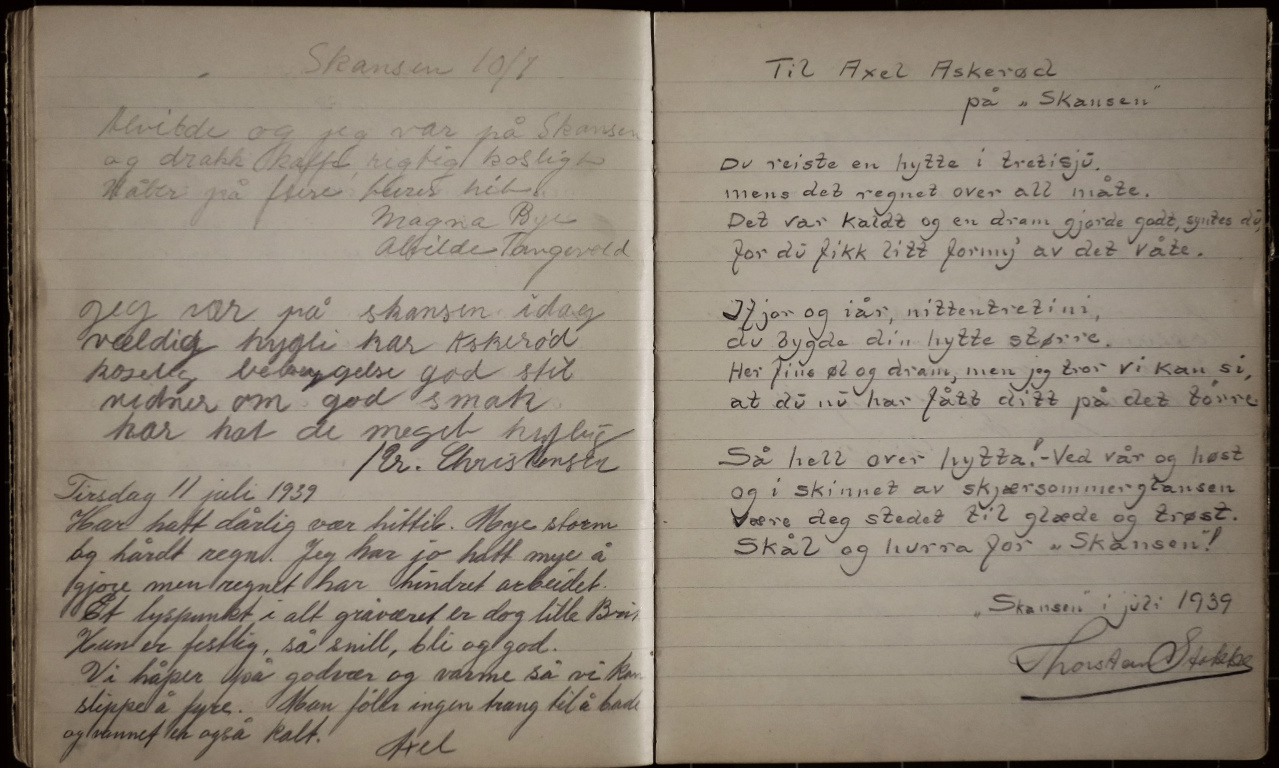 Skansen 10/7
Alvilde og jeg var på Skansen
og drakk kaffe, regtig kosligt
på flere turer hit.
Magna Bye
Alvilde Tangevold
Jeg var på skansen idag
vældig hygli har Askerød
koselig bebyggelse god stil
vidner om god smak
har hat de meget hyglig
Kr. Christensen
Tirsdag 11 juli 1939
Har hatt dårlig vær hittil. Mye storm
og hårdt regn. Jeg har jo hatt mye å
gjøre men regnet har hindret arbeidet.
Et lyspunkt i alt gråværet er dog lille Bris
Hun er festlig, så snill, bli og god.
Vi håper på godvær og varme så vi kan
slippe å fyre. Man føler ingen trang til å bade
og vannet er også kalt.
Axel
Til Axel Askerød
på „Skansen"
Du reiste en hytte i tretisju.
mens det regnet over all måte.
Det var kaldt og en dram gjorde godt, syntes du,
for du fikk litt formy' av det våte.
Ifjor og iår, nittentretini,
du bygde din hytte større.
Her fins øl og dram, men jeg tror vi kan si,
at du nu har fått ditt på det tørre
Så hell over hytta! - Ved vår og høst
og i skinnet av skjærsommerglansen
være deg stedet til glæde og trøst.
Skål og hurra for „Skansen"!
„Skansen" i juli 1939
Thorstein Stokke